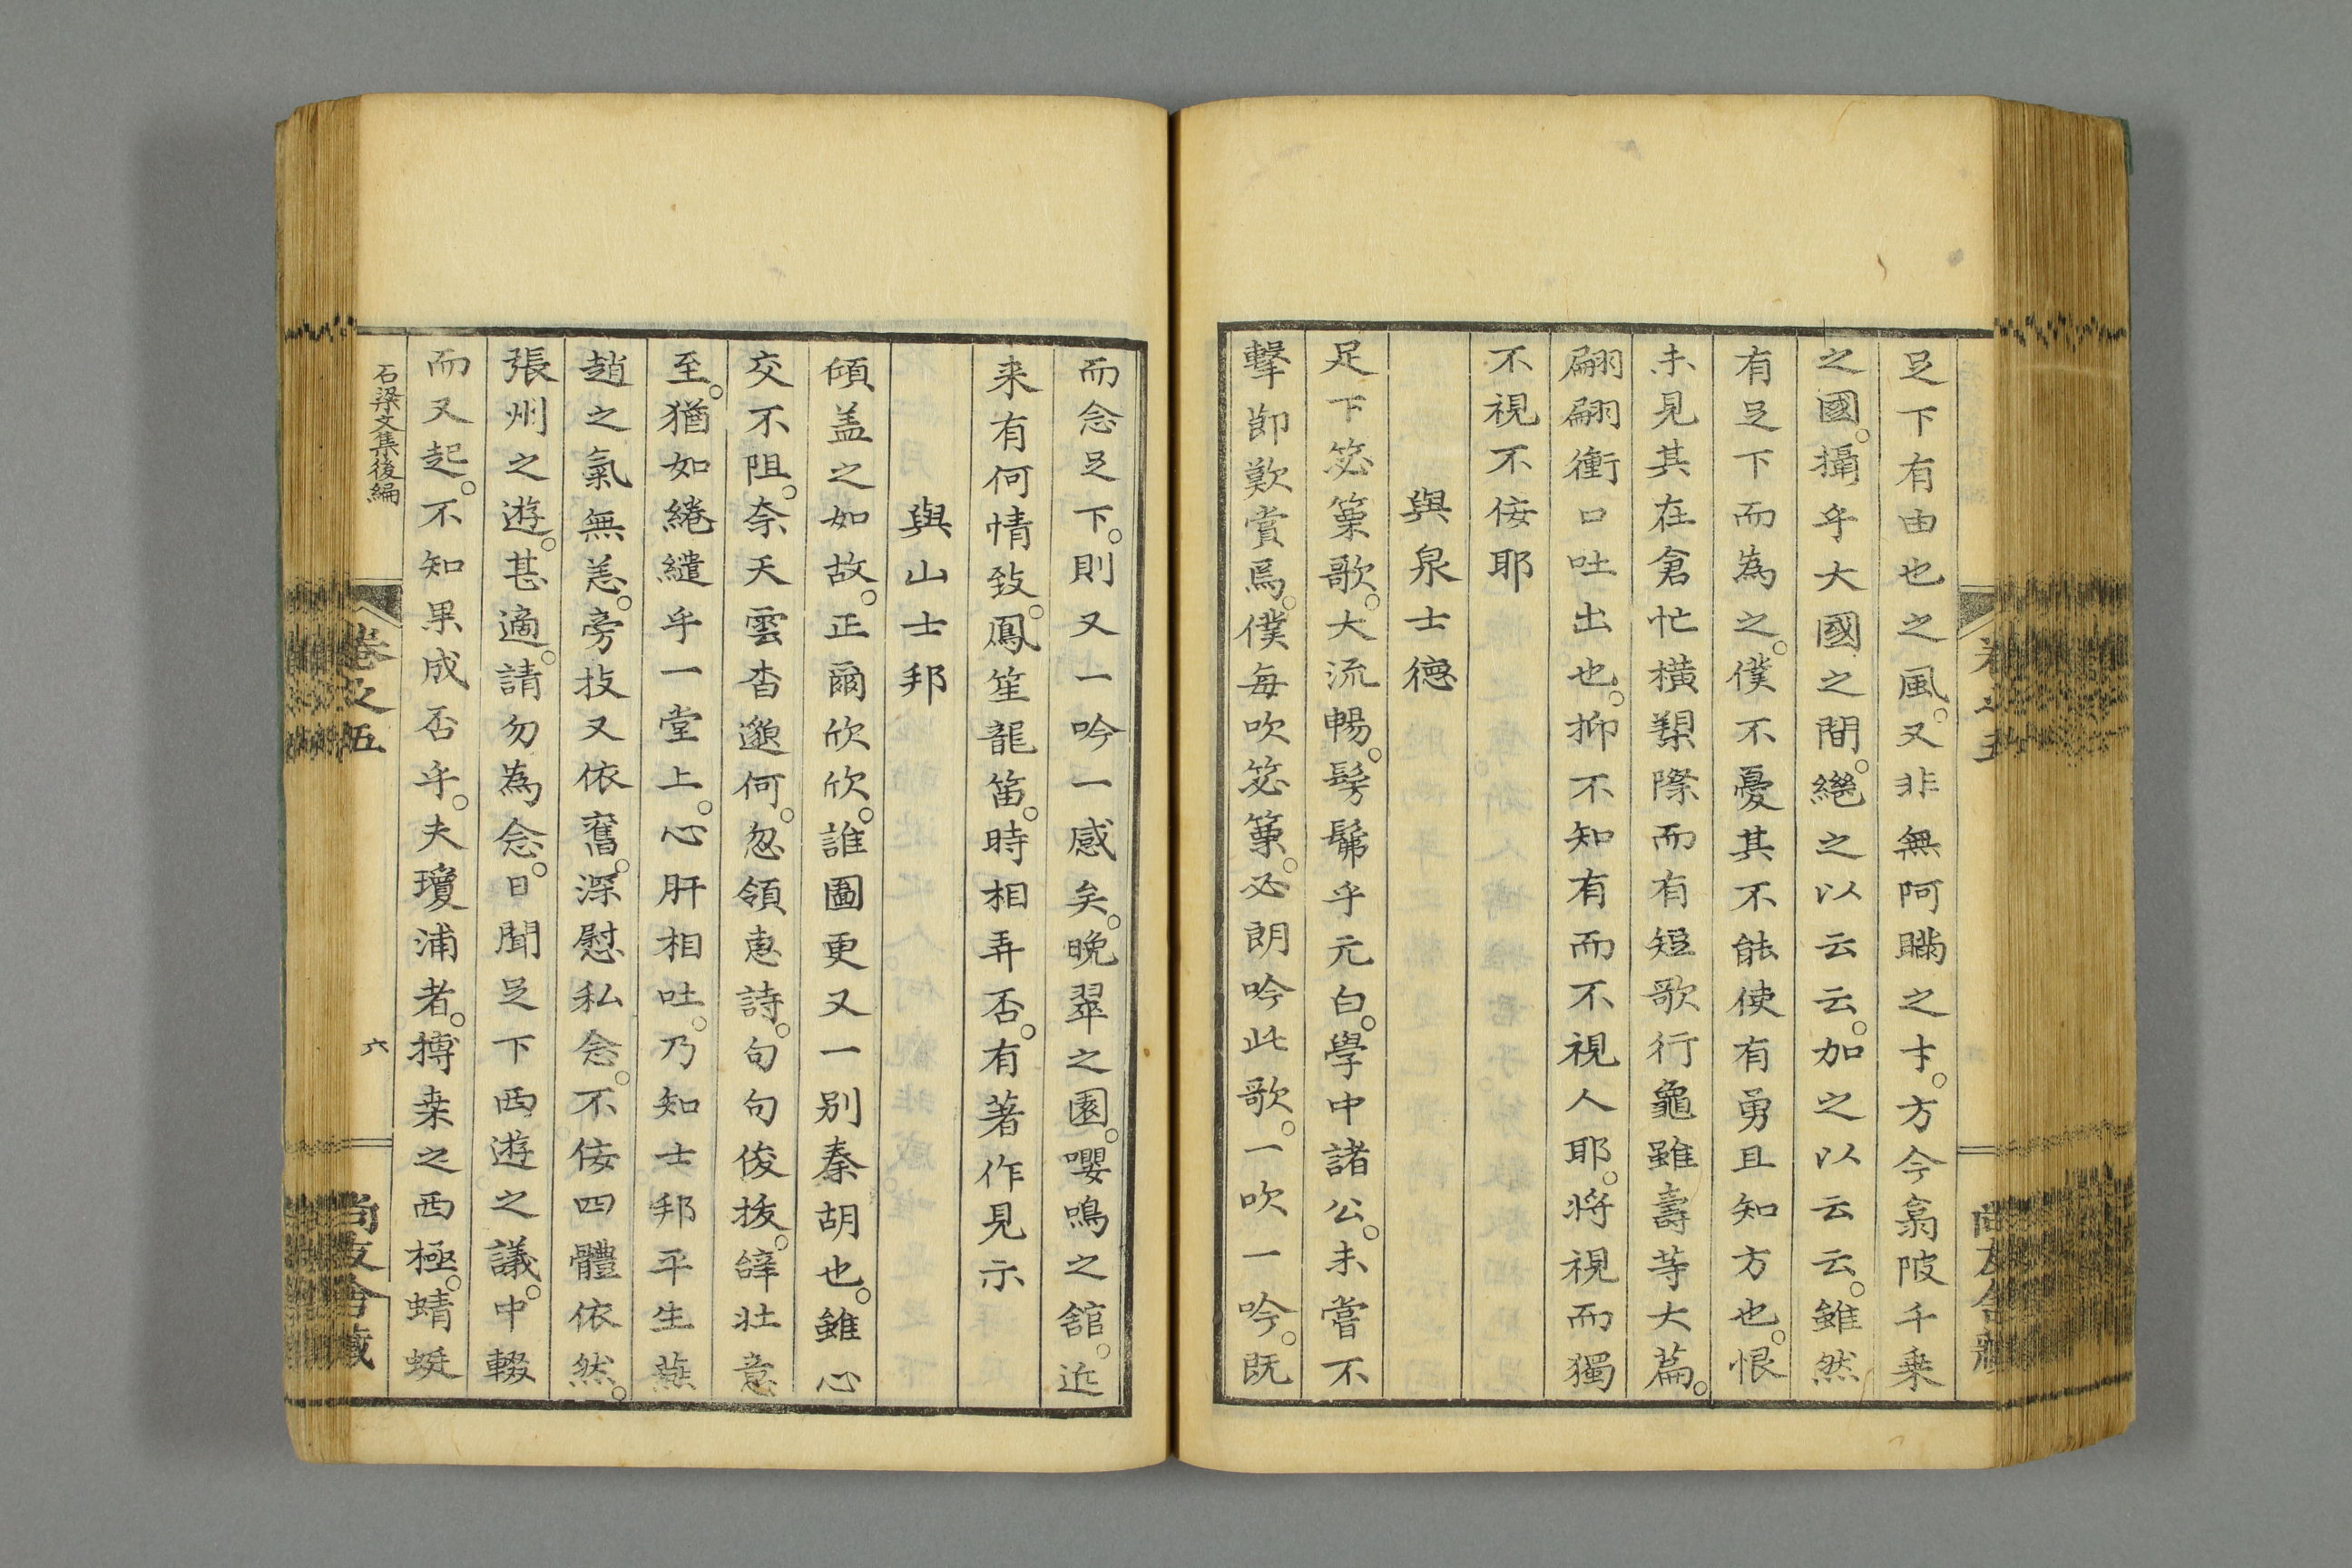 足下有由也之風。又非無阿瞞之才。方今翕陂千乗
之國。攝乎大國之間。繼之以云云。加之以云云。雖然
有足下而為之。僕不憂其不能使有勇且知方也。恨
未見其在倉忙橫槊際而有短歌行龜雖壽等大篇。
翩翩衝口吐出也。抑不知有而不視人耶。将視而獨
不視不侫耶
與泉士德
足下箜篥歌。大流暢。髣髴乎元白。學中諸公。未嘗不
擊節歎賞焉。僕每吹箜篥。必朗吟此歌。一吹一吟。既
而念足下。則又一吟一感矣。晩翠之園。嚶鳴之舘。近
来有何情致。鳳笙龍笛。時相弄否。有著作見示
與山士邦
傾盖之如故。正爾欣欣。誰圖更又一別秦胡也。雖心
交不阻。奈天雲杳邈何。忽領惠詩。句句俊拔。辭壯意
至。猶如綣繾乎一堂上。心肝相吐。乃知士邦平生燕
趙之氣無恙。旁技又依舊。深慰私念。不侫四體依然。
張州之遊。甚適。請勿為念。日聞足下西遊之議。中輟
而又起。不知果成否乎。夫瓊浦者。搏桒之西極。蜻蜓
石梁文集後編
卷之五
六
尚友舍藏